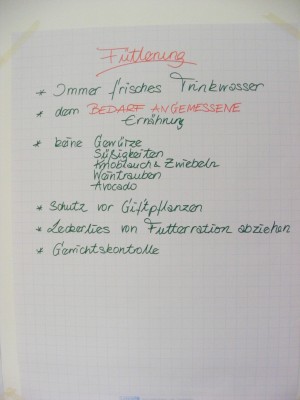 Fütterung
* Immer frisches Trinkwasser
* dem BEDARF ANGEMESSENE
Ernährung
* keine Gewürze
Süßigkeiten
Knoblauch & Zwiebeln
Weintrauben
Avocado
* Schutz vor Giftpflanzen
* Leckerlies von Futterration abziehen
* Gewichtskontrolle